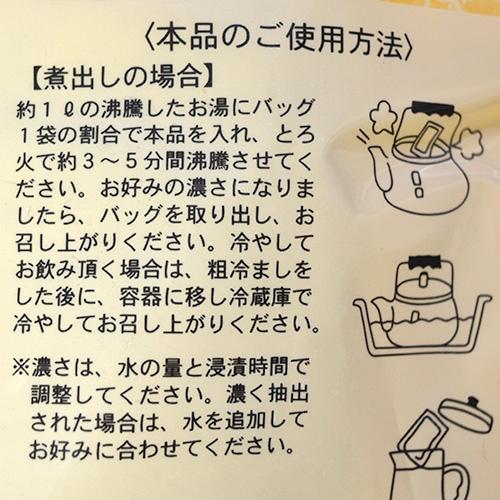 〈本品のご使用方法〉
【煮出しの場合】
約1ℓの沸騰したお湯にバッグ
1袋の割合で本品を入れ、とろ
火で約3〜5分間沸騰させてく
ださい。お好みの濃さになりま
したら、バッグを取り出し、お
召し上がりください。冷やして
お飲み頂く場合は、粗冷ましを
した後に、容器に移し冷蔵庫で
冷やしてお召し上がりください。
※濃さは、水の量と浸漬時間で
調整してください。濃く抽出
された場合は、水を追加して
お好みに合わせてください。